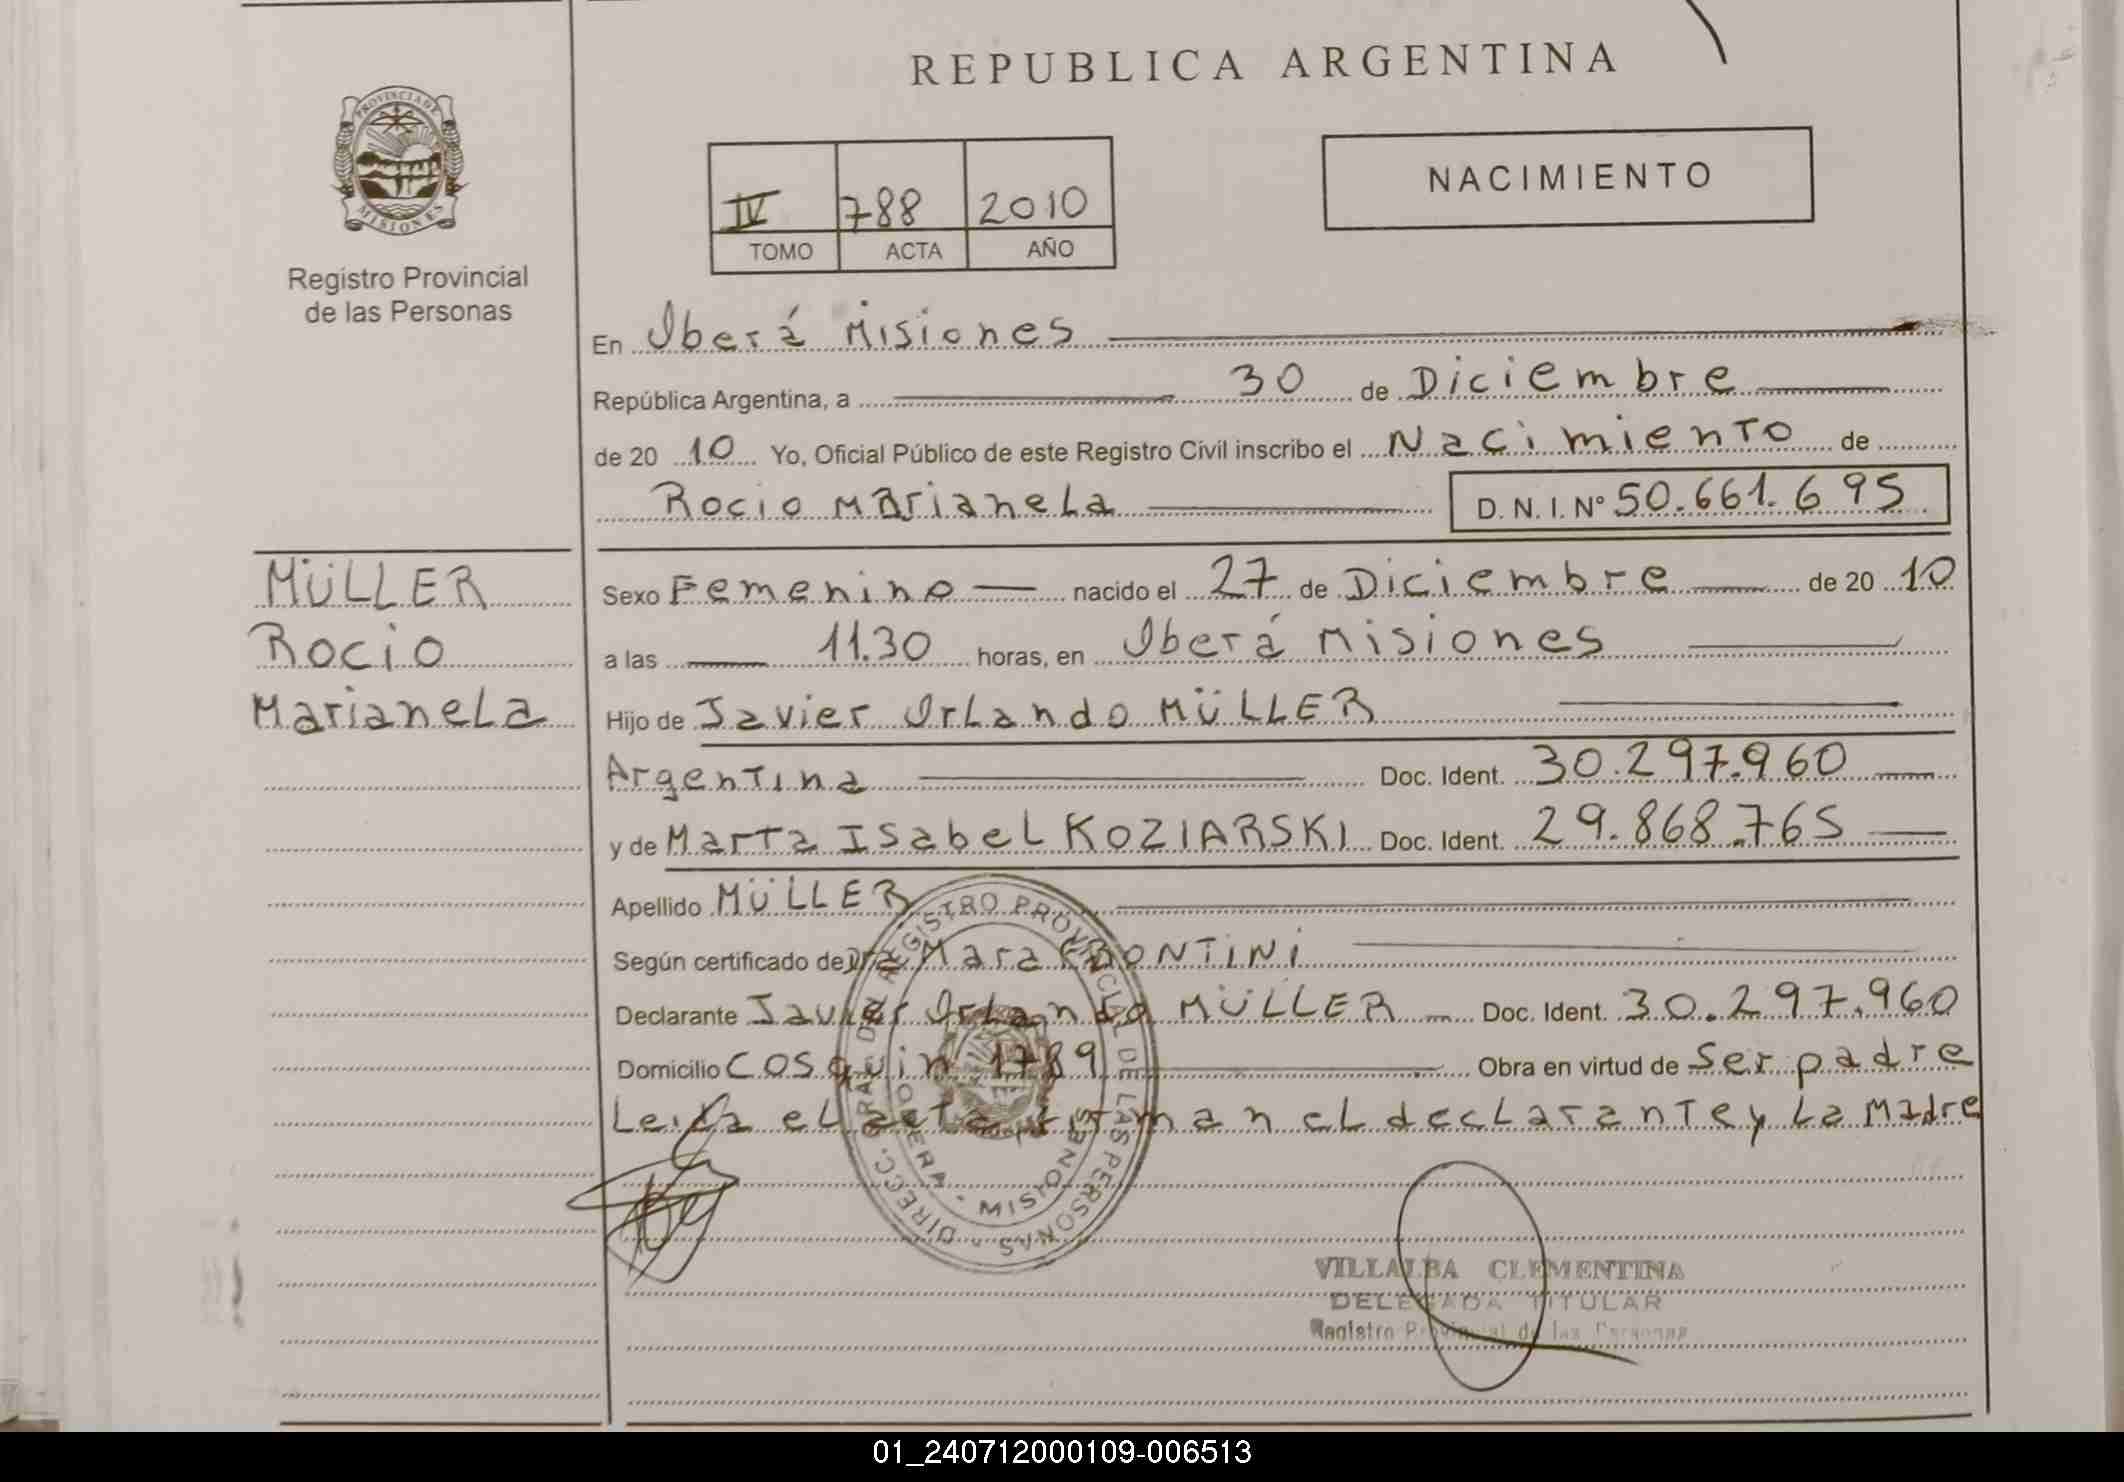 REPUBLICA ARGENTINA
PROVINCIA DE MISIONES
Registro Provincial
de las Personas
IV 788 2010
TOMO ACTA AÑO
NACIMIENTO
En Oberá Misiones
República Argentina, a 30 de Diciembre
de 20 10 Yo, Oficial Público de este Registro Civil inscribo el Nacimiento de
Rocio Marianela D. N. I. Nº 50.661.695
MÜLLER
Rocio
Marianela
Sexo Femenino nacido el 27 de Diciembre de 20 10
a las 11.30 horas, en Oberá Misiones
Hijo de Javier Orlando MÜLLER
Argentina Doc. Ident. 30.297.960
y de Marta Isabel KOZIARSKI Doc. Ident. 29.868.765
Apellido MÜLLER
Según certificado de Dra Mara
Declarante Javier Orlando MÜLLER Doc. Ident. 30.297.960
Domicilio Cosquin 1789 Obra en virtud de Ser padre
Leida el acta firman el declarante y La Madre
DIRECC. GRAL. DEL REGISTRO PROVINCIAL DE LAS PERSONAS
OBERA - MISIONES
VILLALBA CLEMENTINA
DELEGADA TITULAR
Registro Provincial de las Personas
01_240712000109-006513